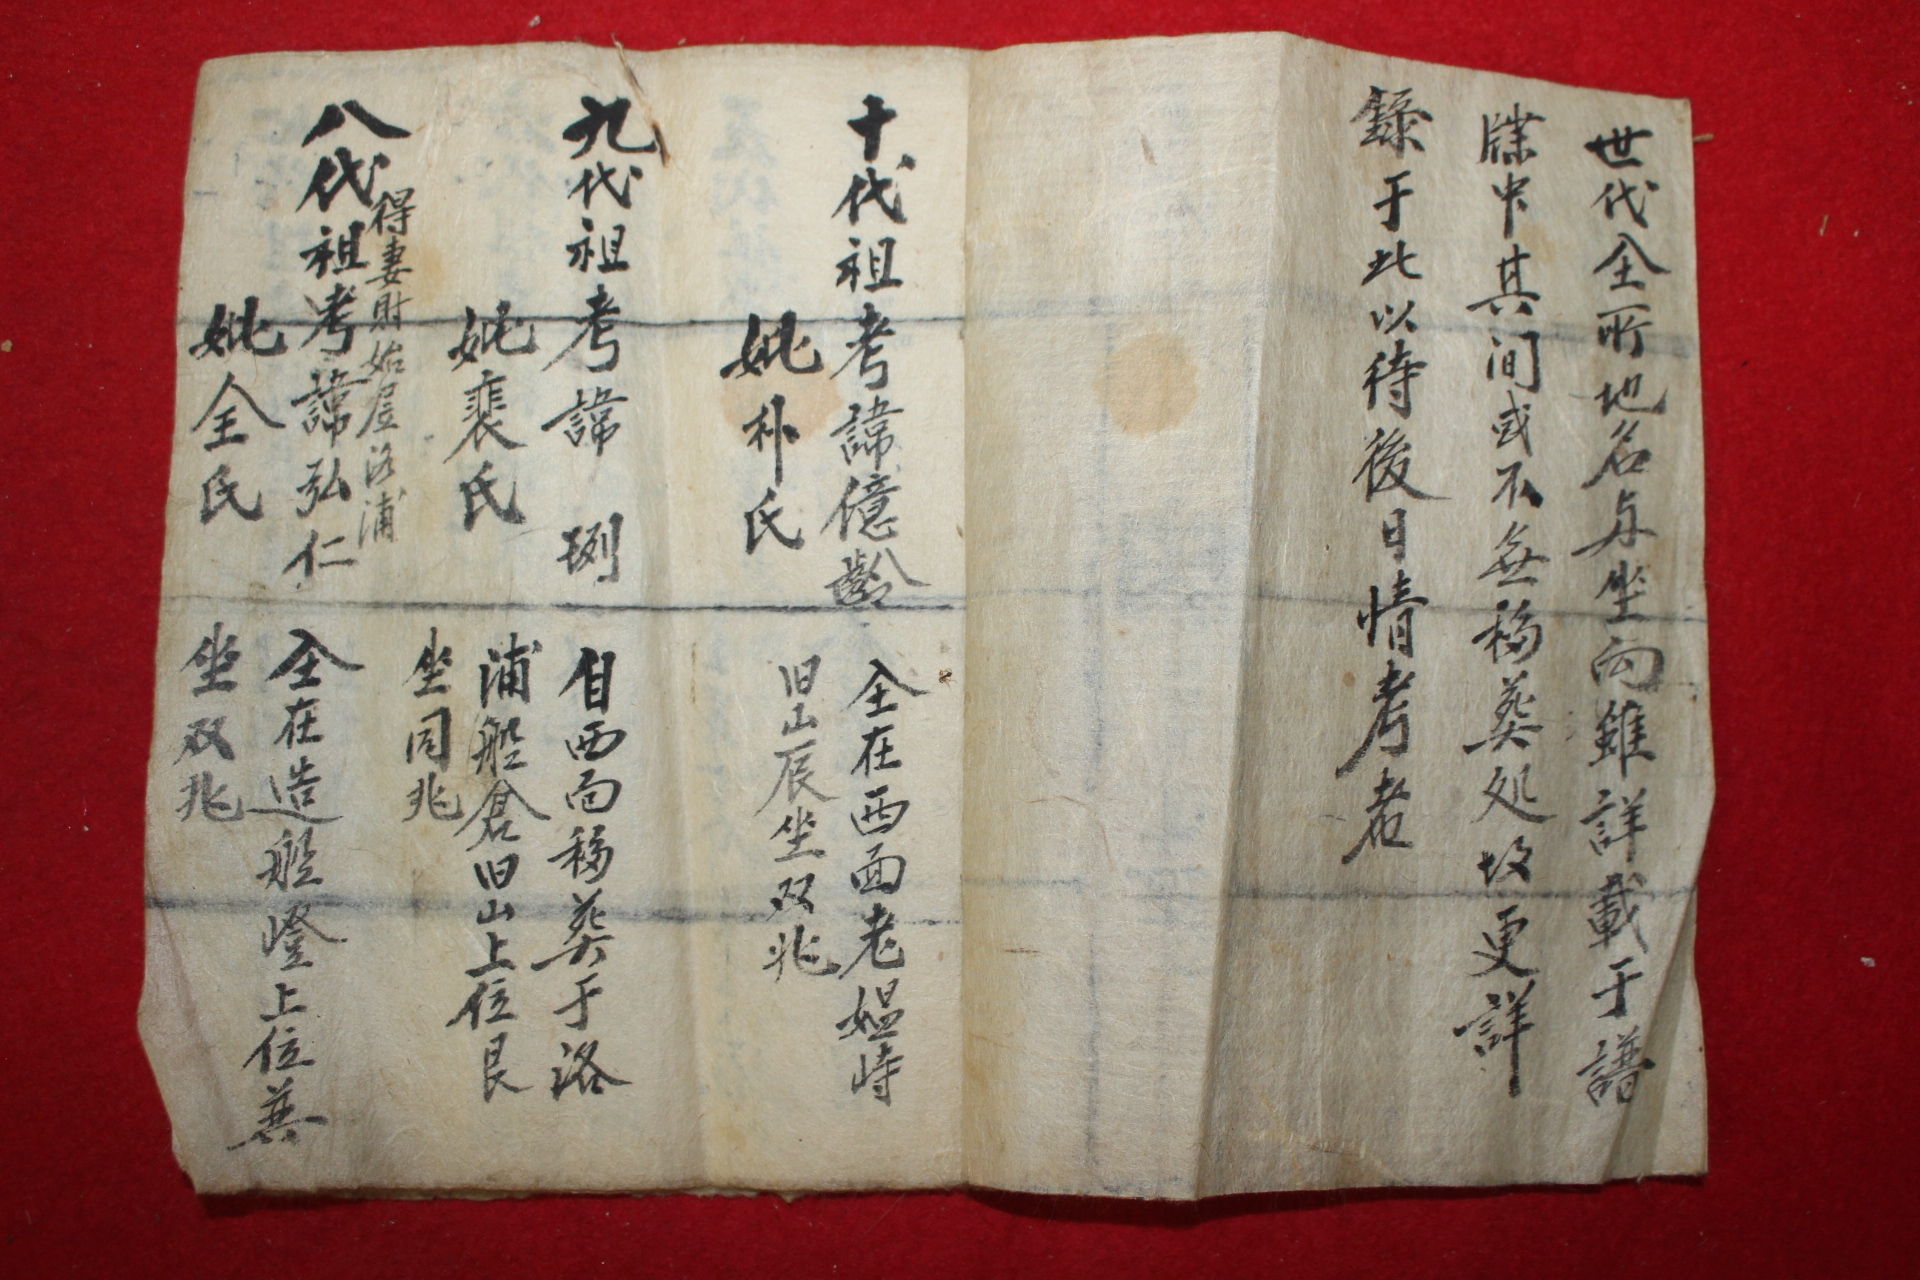 世代仝所地名与坐向雖詳載于譜
牒中其间或不無移葬处故更詳
錄于此以待後日情考者
十代祖考諱億齡
妣朴氏
仝在西面老媪峙
旧山辰坐双兆
九代祖考諱 琍
妣裴氏
自西面移葬于洛
浦船倉旧山上位艮
坐同兆
得妻財始居洛浦
八代祖考諱弘仁
妣全氏
仝在造船嶝上位巽
坐双兆